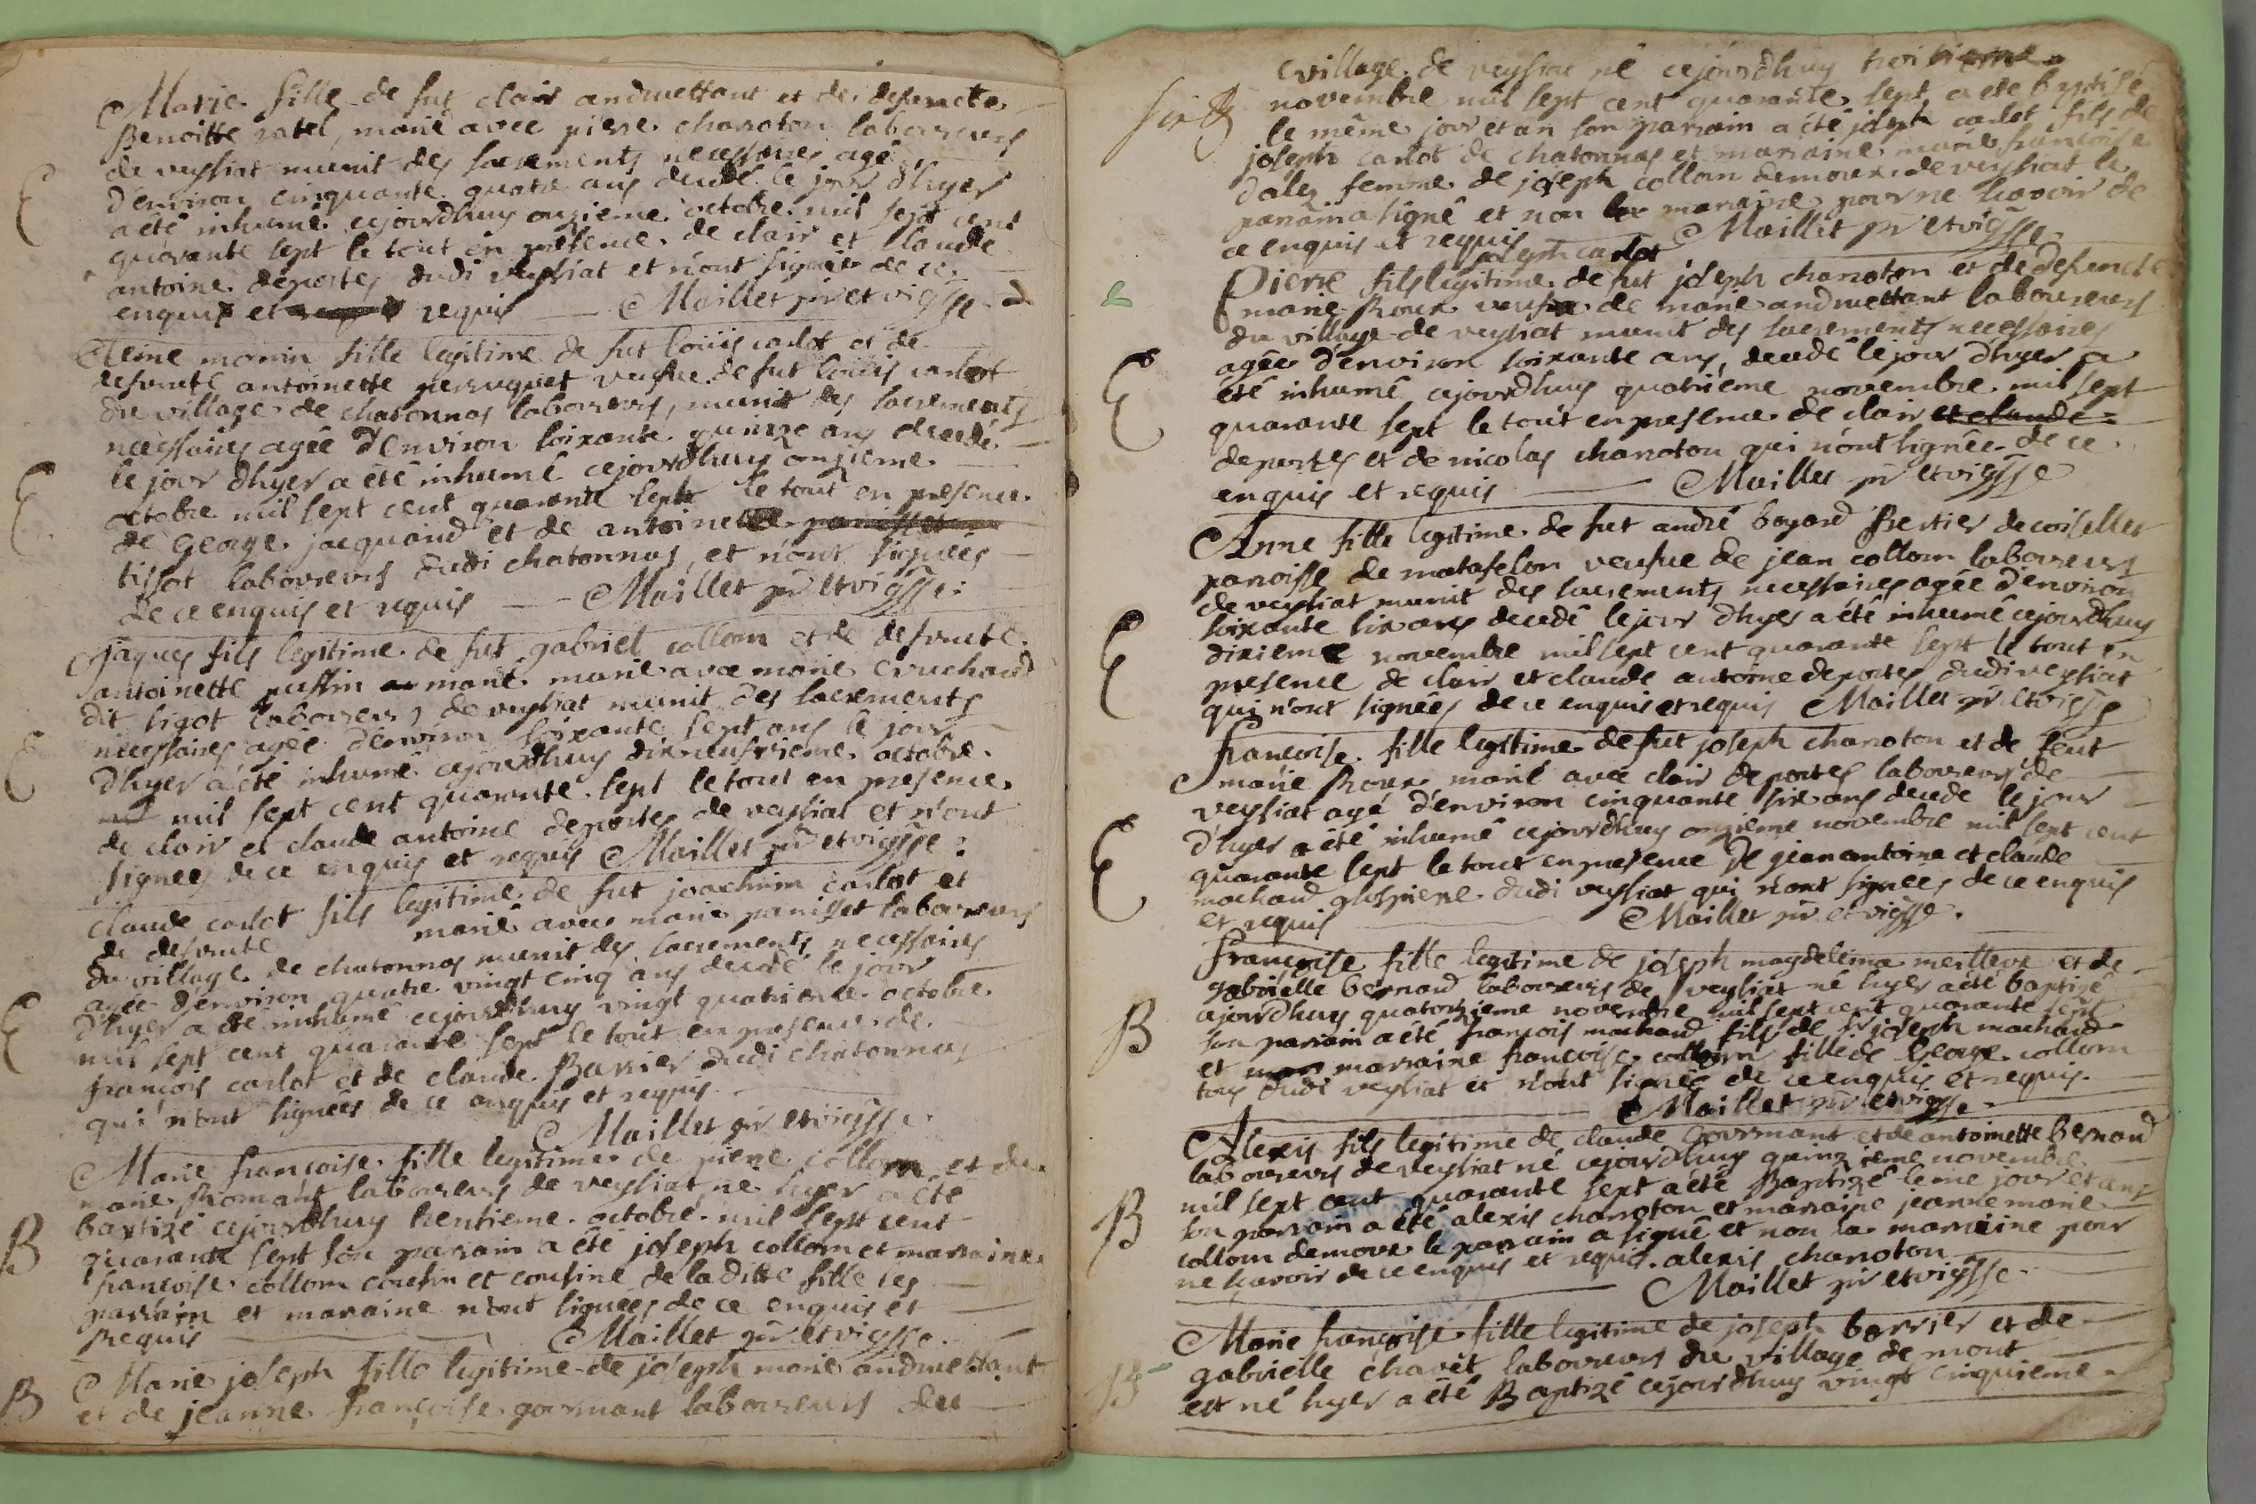 Marie fille de fut clair andruettant et de defuncte
Benoitte ratel, marié avec pierre charroton laboureurs
de veyssiat munit des sacrements necessaires agé
d'environ cinquante quatre ans decedé le jour d'hyer
E a été inhumé cejourdhuy onzieme octobre mil sept cent
quarante sept le tout en presence de clair et claude
antoine deportes dudi veyssiat et n'ont signées de ce
enquis et requis Maillet ptr et vic sse
momin fille legitime de fut loüis carlot et de
defuncte antoinette perruquet veufve de fut loüis carlot
du village de chatonnas laboureurs, munit des sacrements
necessaires agée d'environ soixante quinze ans decedé
E le jour d'hyer a été inhumé cejourdhuy onzieme
octobre mil sept cent quarante sept le tout en presence
de George jacquand et de antoine
tissot laboureurs dudi chatonnas, et n'ont signées
de ce enquis et requis Maillet ptr et vic sse
jaques fils legitime de fut gabriel collom et de defuncte
antoinette marié marié avec marie cruchaud
dit sigot laboureurs de veyssiat munit des sacrements
necessaires agée d'environ soixante sept ans le jour
E d'hyer a été inhumé cejourdhuy dixneufvieme octobre
mil sept cent quarante sept le tout en presence
de clair et claude antoine deportes de veyssiat et n'ont
signees de ce enquis et requis Maillet ptr et vic sse
claude carlot fils legitime de fut joachim carlot et
de defuncte marié avec marie panisset laboureurs
du village de chatonnas munit des sacrements necessaires
agée d'environ quatre vingt cinq ans decedé le jour
E d'hyer a été inhumé cejourdhuy vingt quatrieme octobre
mil sept cent quarante sept le tout en presence de
francois carlot et de claude Barrier dudi chatonnas
qui n'ont signées de ce enquis et requis
Maillet ptr et vic sse
Marie françoise fille legitime de piere collom et de
marie Romant laboureurs de veyssiat né hyer a été
B baptizé cejourdhuy trentieme octobre mil sept cent
quarante sept son parrain a été joseph collom et marraine
françoise collom cousin et cousine de laditte fille les
parrain et maraine n'ont signées de ce enquis et
Requis Maillet ptr et vic sse
Marie joseph fille legitime de joseph marie andruettant
B et de jeanne françoise gourmant laboureurs du
village de veyssiat né cejourdhuy troisieme
novembre mil sept cent quarante sept a été baptisé
le même jour et an son parrain a été joseph carlot fils de
joseph carlot de chatonnas et marraine marie françoise
dalez femme de joseph collom demeure de veyssiat le
parrain a signé et non la maraine pour ne sçavoir de
ce enquis et requis Maillet ptr et vic sse
joseph carlot
Pierre fils legitime de fut joseph charroton et de defuncte
marie Roux de marie andruettant laboureurs
du village de veyssiat munit des sacrements necessaires
agée d'environ soixante ans, decedé le jour d'hyer a
E été inhumé cejourdhuy quatrieme novembre mil sept
quarante sept le tout en presence de clair et claude
deportes et de nicolas charroton qui n'ont signées de ce
enquis et requis Maillet ptr et vic sse
Anne fille legitime de fut andré boyard Bertier de coiselles
paroisse de matafelon veufve de jean collom laboureurs
de veyssiat munit des sacrements necessaires agée d'environ
soixante six ans decedé le jour d'hyer a été inhumé cejourdhuy
E dixieme novembre mil sept cent quarante sept le tout en
presence de clair et claude antoine deportes dudi veyssiat
qui n'ont signées de ce enquis et requis Maillet ptr et vic sse
francoise fille legitime de fut joseph charroton et de feut
marie Roux marié avec clair deportes laboureurs de
veyssiat agé d'environ cinquante six ans decede le jour
E d'hyer a été inhumé cejourdhuy onzieme novembre mil sept cent
quarante sept le tout en presence de jean antoine et claude
machard dudi veyssiat qui n'ont signees de ce enquis
et requis Maillet ptr et vic sse
Françoise fille legitime de joseph magdeleine meilleur et de
gabrielle bernard laboureurs de veyssiat né hyer a été baptizé
B cejourdhuy quatorzieme novembre mil sept cent quarante sept
son parrain a été françois machard fils de sr joseph machard
et marraine françoise collom fille de George collom
tous dudi veyssiat et n'ont signée de ce enquis et requis
Maillet ptr et vic sse
Alexis fils legitime de claude Gourmant et de antoinette Bernard
laboureurs de veyssiat né cejourdhuy quinzieme novembre
B mil sept cent quarante sept a été Baptizé le mê jour et an
son parrain a été alexis charroton et marraine jeanne marie
collom demoure le parrain a signé et non la marraine pour
ne sçavoir de ce enquis et requis. alexis charroton
Maillet ptr et vic sse
Marie françoise fille legitime de joseph barrier et de
gabrielle chavet laboureurs du village de mont
B est né hyer a été Baptizé cejourdhuy vingt cinquieme